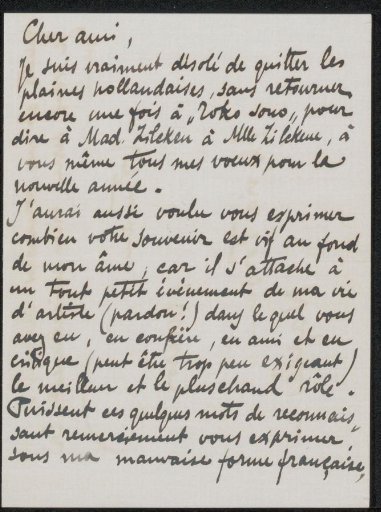 Cher ami,
Je suis vraiment désolé de quitter les
plaines hollandaises, sans retourner
encore une fois à "Toko sono", pour
dire à Mad. Zilcken à Mlle Zilcken, à
vous même tous mes voeux pour la
nouvelle année.
J'aurai aussi voulu vous exprimer
combien votre souvenir est vif au fond
de mon âme, car il s'attache à
un tout petit événement de ma vie
d'artiste (pardon!) dans lequel vous
avez eu, en confrère, en ami et en
critique (peut être trop peu exigeant)
le meilleur et le plus chaud rôle.
Puissent ces quelques mots de reconnais-
sant remerciement vous exprimer
sous ma mauvaise forme française,